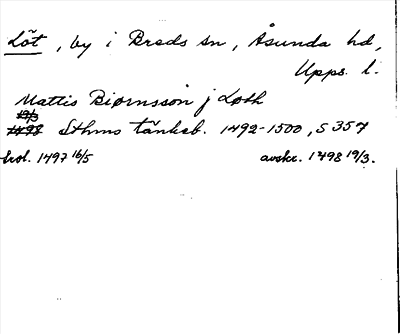 Löt, by i Breds sn, Åsunda hd,
Upps. l.
Mattis Biørnsson j Løth
Sthms tänkeb. 1492-1500, S 357
trol. 1497 16/5 avskr. 1498 19/3.